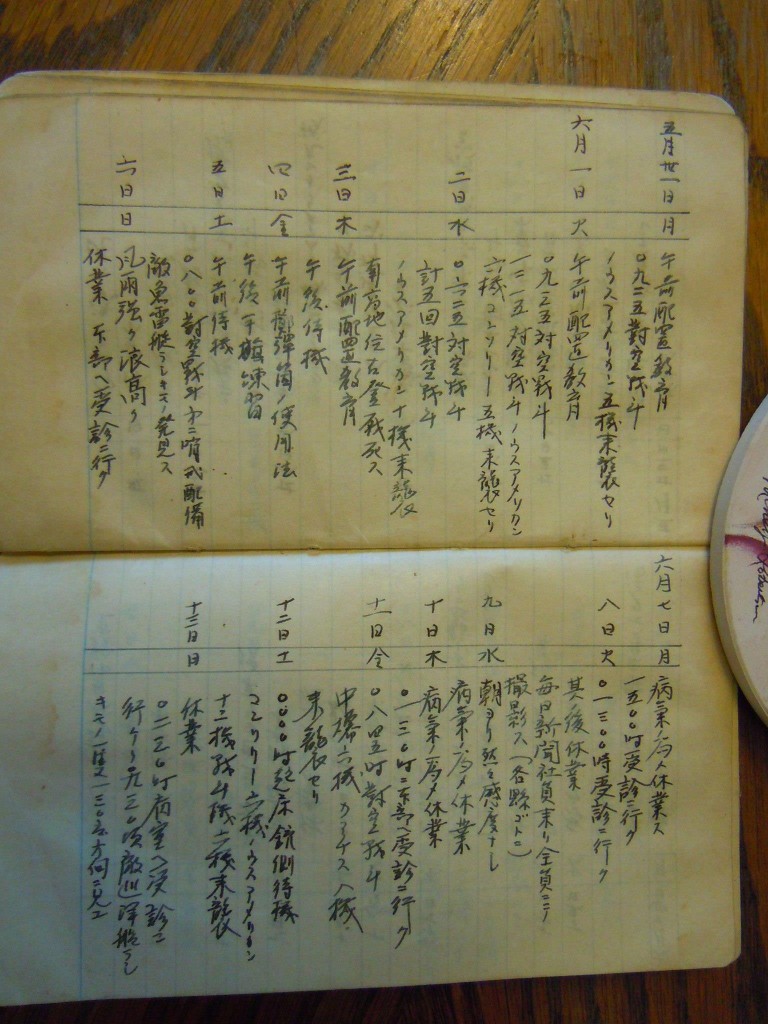 五月卅一日 月
午前配置教育
〇九二五對空戦斗
ノウスアメリカン五機来襲セリ
六月一日 火
午前配置教育
〇九三五対空戦斗
一三一五対空戦斗ノウスアメリカン
六機コンソリー五機来襲セリ
二日 水
〇六二五対空戦斗
計五回對空戦斗
ノウスアメリカン十機来襲
戦死ス
三日 木
午前配置教育
午後待機
四日 金
午前 使用法
午後手旗練習
五日 土
午前待機
〇八〇〇對空戦斗 第二哨戒配備
敵魚雷艇ラシキモノ発見ス
六日 日
風雨強ク浪高ク
休業 本部ヘ受診ニ行ク
六月七日 月
病氣ノ為メ休業ス
一五〇〇時受診ニ行ク
八日 火
〇一三〇〇時受診ニ行ク
其ノ後休業
毎日新聞社員来リ全員ニテ
撮影ス(各縣ゴトニ)
九日 水
朝ヨリ熱ヲ感ズ
病氣ノ為メ休業
十日 木
病氣ノ為メ休業
〇一三〇時本部ヘ受診ニ行ク
十一日 金
〇八四五時對空戦斗
中爆六機
来襲セリ
十二日 土
〇〇〇〇時起床銃側待機
コンソリー六機ノウスアメリカン
十二機戦斗機六機来襲
十三日 日
休業
〇二三〇時病室ヘ受診ニ
行ケリ